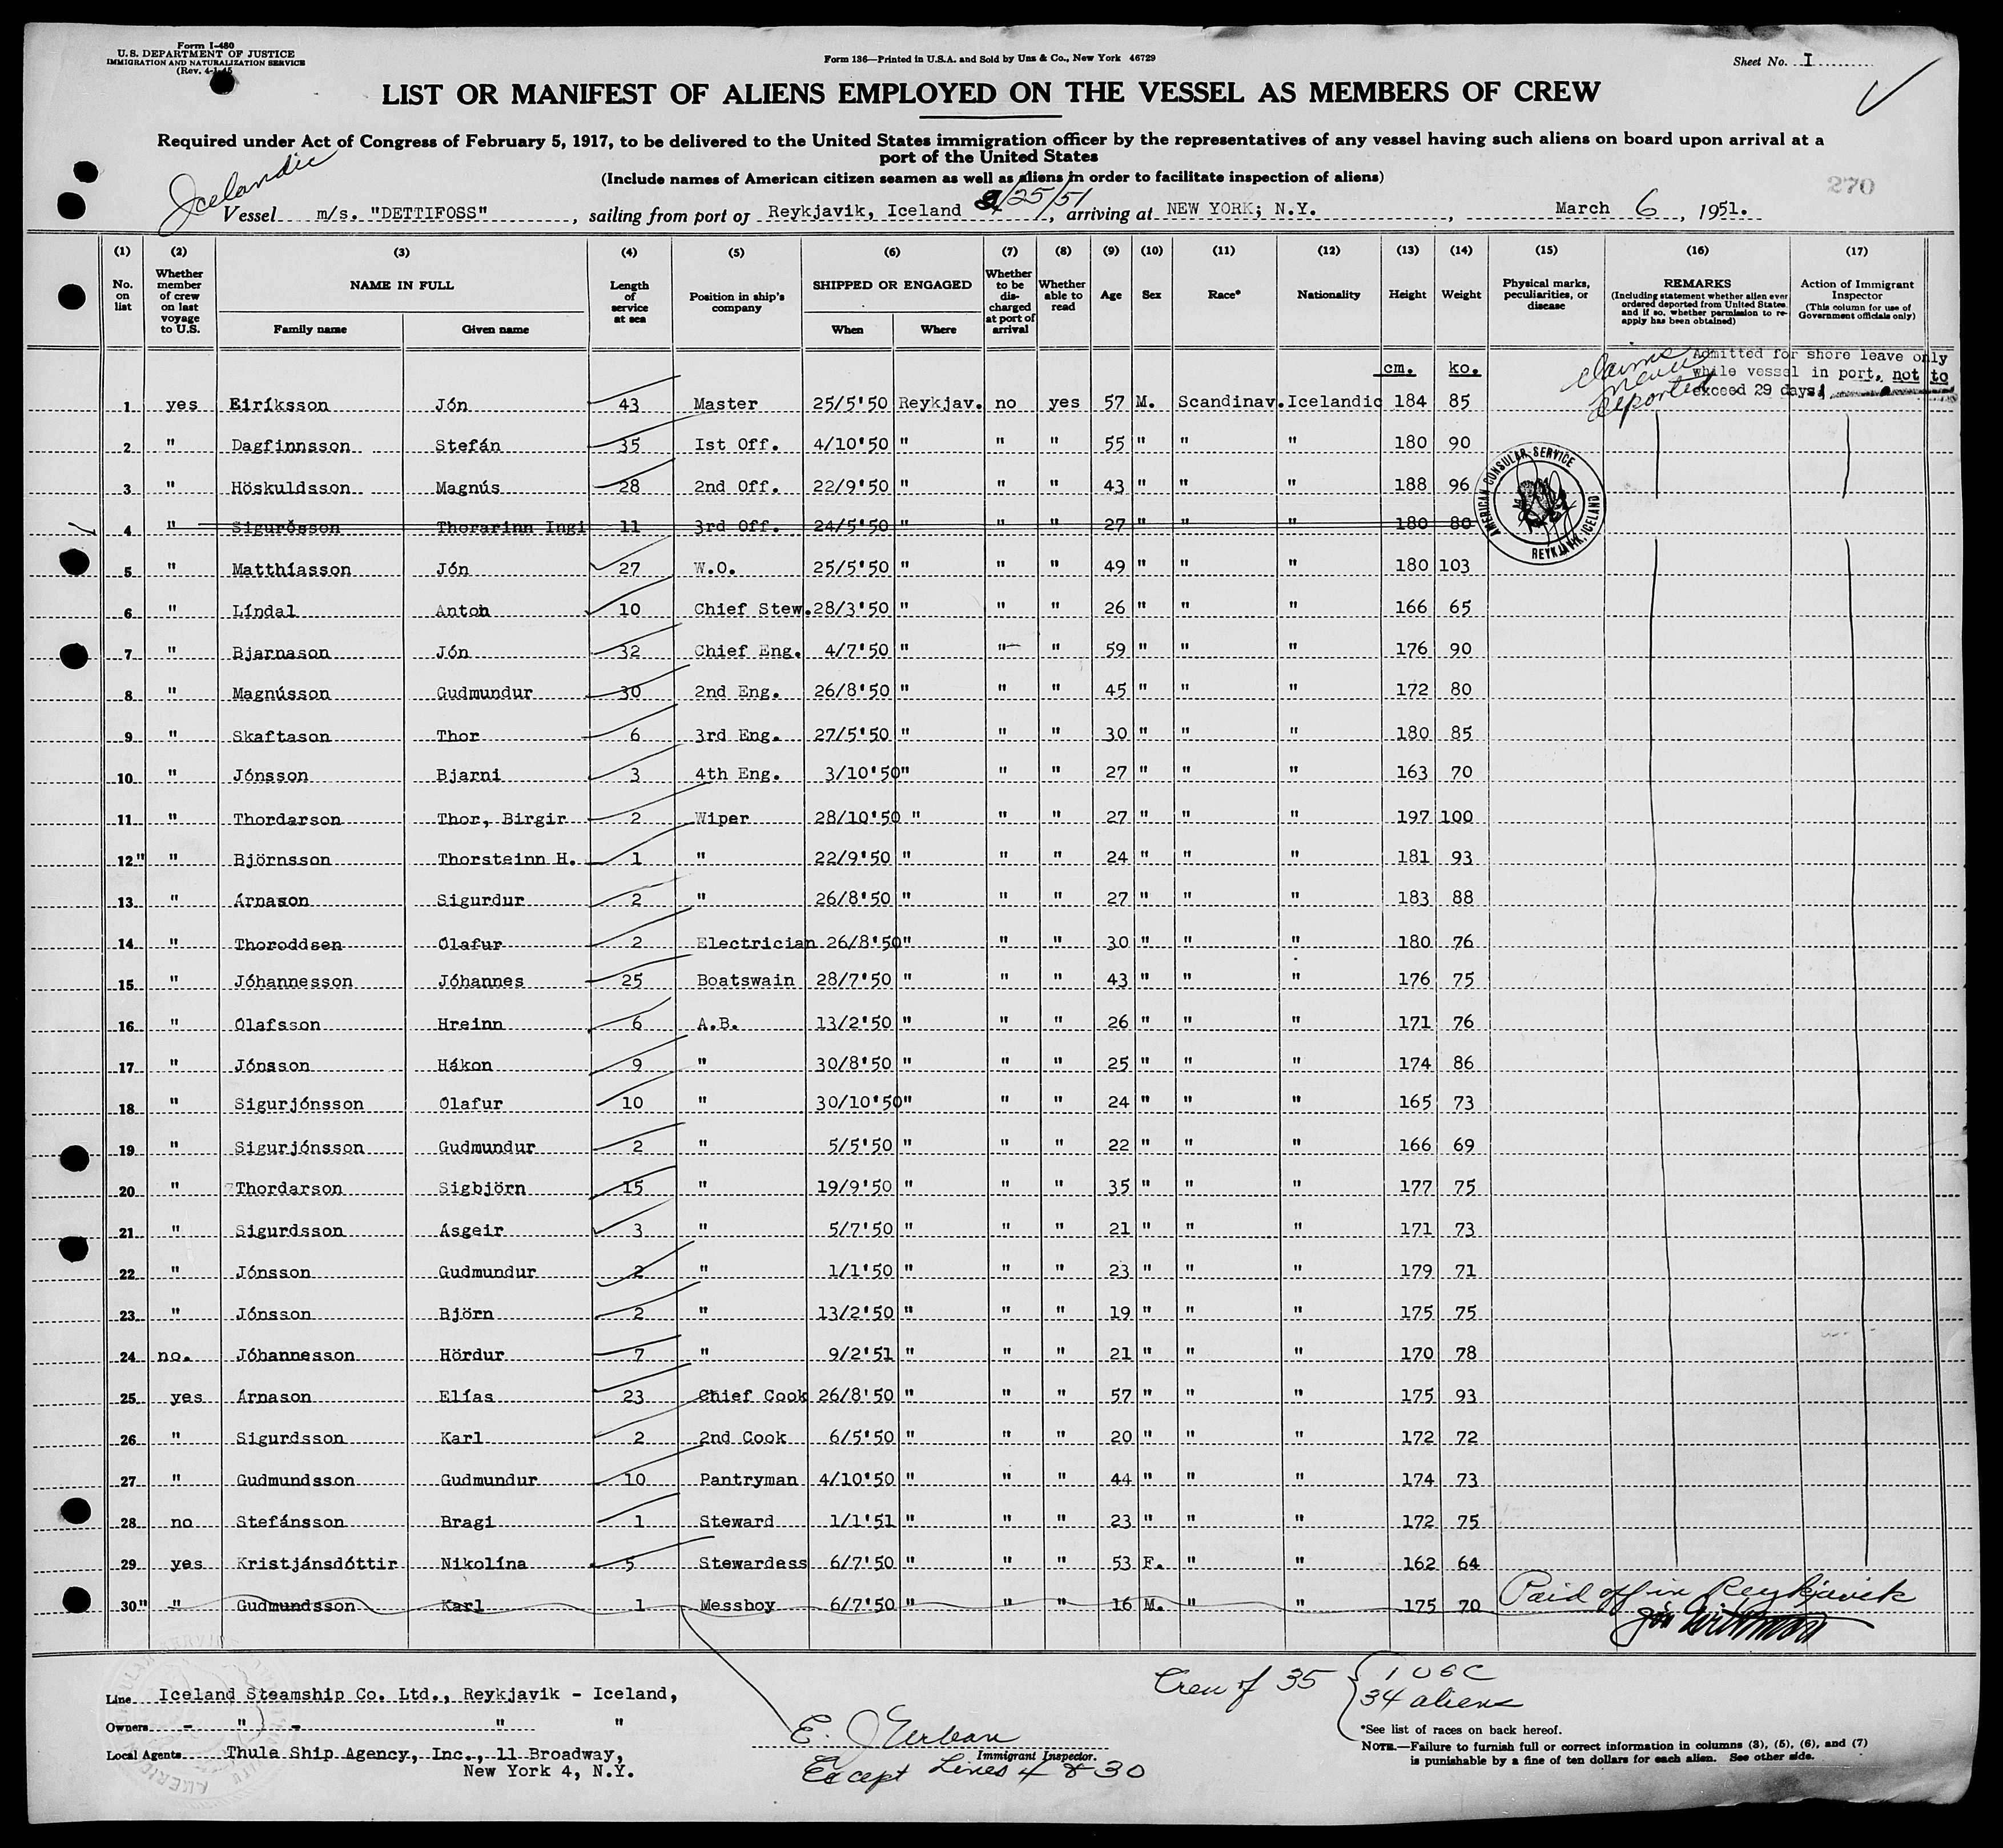 Form I-480
U.S. DEPARTMENT OF JUSTICE
IMMIGRATION AND NATURALIZATION SERVICE
(Rev. 4-1-45
Form 136—Printed in U.S.A. and Sold by Unz & Co., New York 46729
Sheet No. I
LIST OR MANIFEST OF ALIENS EMPLOYED ON THE VESSEL AS MEMBERS OF CREW
Required under Act of Congress of February 5, 1917, to be delivered to the United States immigration officer by the representatives of any vessel having such aliens on board upon arrival at a
port of the United States
(Include names of American citizen seamen as well as aliens in order to facilitate inspection of aliens)
270
Icelandic
Vessel m/s. "DETTIFOSS", sailing from port of Reykjavik, Iceland 2/25/51, arriving at NEW YORK; N.Y., March 6, 1951.
(1) (2) (3) (4) (5) (6) (7) (8) (9) (10) (11) (12) (13) (14) (15) (16) (17)
No. on list
Whether member of crew on last voyage to U.S.
NAME IN FULL
Family name Given name
Length of service at sea
Position in ship's company
SHIPPED OR ENGAGED
When Where
Whether to be discharged at port of arrival
Whether able to read
Age
Sex
Race*
Nationality
Height
Weight
Physical marks, peculiarities, or disease
REMARKS
(Including statement whether alien ever ordered deported from United States and if so, whether permission to re-apply has been obtained)
Action of Immigrant Inspector
(This column for use of Government officials only)
cm. ko.
claims never deported
Admitted for shore leave only
while vessel in port, not to
exceed 29 days
1 yes Eiríksson Jón 43 Master 25/5'50 Reykjav. no yes 57 M. Scandinav. Icelandic 184 85
2 " Dagfinnsson Stefán 35 Ist Off. 4/10'50 " " " 55 " " " 180 90
3 " Höskuldsson Magnús 28 2nd Off. 22/9'50 " " " 43 " " " 188 96
4 " Sigurðsson Thorarinn Ingi 11 3rd Off. 24/5'50 " " " 27 " " " 180 80
AMERICAN CONSULAR SERVICE
REYKJAVIK, ICELAND
5 " Matthíasson Jón 27 W.O. 25/5'50 " " " 49 " " " 180 103
6 " Líndal Anton 10 Chief Stew. 28/3'50 " " " 26 " " " 166 65
7 " Bjarnason Jón 32 Chief Eng. 4/7'50 " " " 59 " " " 176 90
8 " Magnússon Gudmundur 30 2nd Eng. 26/8'50 " " " 45 " " " 172 80
9 " Skaftason Thor 6 3rd Eng. 27/5'50 " " " 30 " " " 180 85
10 " Jónsson Bjarni 3 4th Eng. 3/10'50 " " " 27 " " " 163 70
11 " Thordarson Thor, Birgir 2 Wiper 28/10'50 " " " 27 " " " 197 100
12" " Björnsson Thorsteinn H. 1 " 22/9'50 " " " 24 " " " 181 93
13 " Árnason Sigurdur 2 " 26/8'50 " " " 27 " " " 183 88
14 " Thoroddsen Ólafur 2 Electrician 26/8'50 " " " 30 " " " 180 76
15 " Jóhannesson Jóhannes 25 Boatswain 28/7'50 " " " 43 " " " 176 75
16 " Ólafsson Hreinn 6 A.B. 13/2'50 " " " 26 " " " 171 76
17 " Jónsson Hákon 9 " 30/8'50 " " " 25 " " " 174 86
18 " Sigurjónsson Ólafur 10 " 30/10'50 " " " 24 " " " 165 73
19 " Sigurjónsson Gudmundur 2 " 5/5'50 " " " 22 " " " 166 69
20 " Thordarson Sigbjörn 15 " 19/9'50 " " " 35 " " " 177 75
21 " Sigurdsson Ásgeir 3 " 5/7'50 " " " 21 " " " 171 73
22 " Jónsson Gudmundur 2 " 1/1'50 " " " 23 " " " 179 71
23 " Jónsson Björn 2 " 13/2'50 " " " 19 " " " 175 75
24 no. Jóhannesson Hördur 7 " 9/2'51 " " " 21 " " " 170 78
25 yes Árnason Elías 23 Chief Cook 26/8'50 " " " 57 " " " 175 93
26 " Sigurdsson Karl 2 2nd Cook 6/5'50 " " " 20 " " " 172 72
27 " Gudmundsson Gudmundur 10 Pantryman 4/10'50 " " " 44 " " " 174 73
28 no Stefánsson Bragi 1 Steward 1/1'51 " " " 23 " " " 172 75
29 yes Kristjánsdóttir Nikolína 5 Stewardess 6/7'50 " " " 53 F. " " 162 64
30" " Gudmundsson Karl 1 Messboy 6/7'50 " " " 16 M. " " 175 70 Paid off in Reykjavik
Crew of 35 { 1 USC
34 aliens
Line Iceland Steamship Co. Ltd., Reykjavik - Iceland,
Owners - " - " "
Local Agents Thule Ship Agency, Inc., 11 Broadway,
New York 4, N.Y.
E. J Urban
Immigrant Inspector.
Except Lines 4 & 30
*See list of races on back hereof.
NOTE.—Failure to furnish full or correct information in columns (3), (5), (6), and (7)
is punishable by a fine of ten dollars for each alien. See other side.